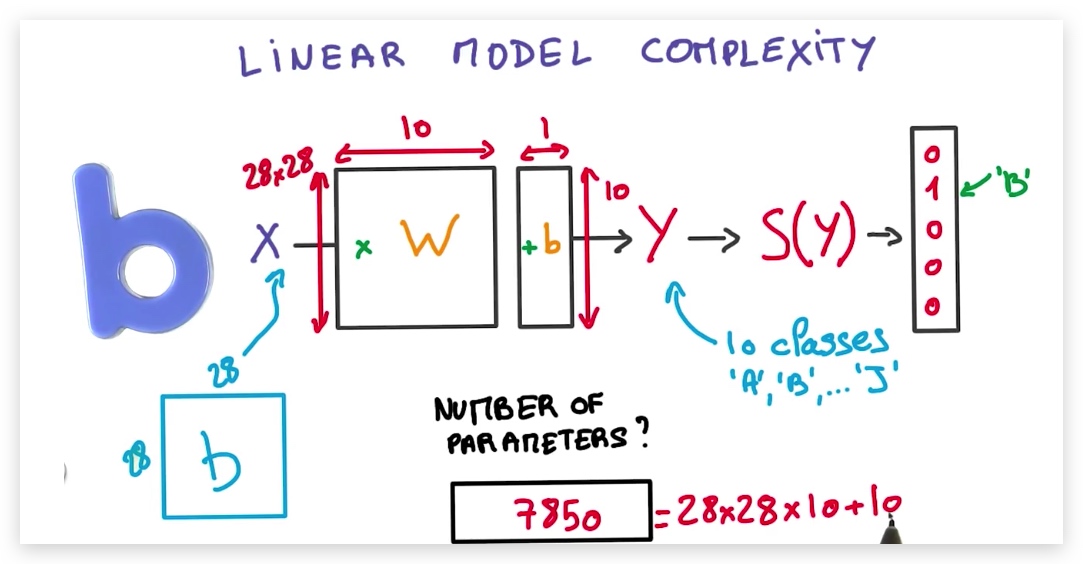 LINEAR MODEL COMPLEXITY
10
1
28x28
X
x W
+ b
10
Y
S(Y)
0
1
0
0
0
'B'
10 classes
'A', 'B', ... 'J'
28
28
b
NUMBER OF
PARAMETERS?
7850 = 28x28x10+10
b